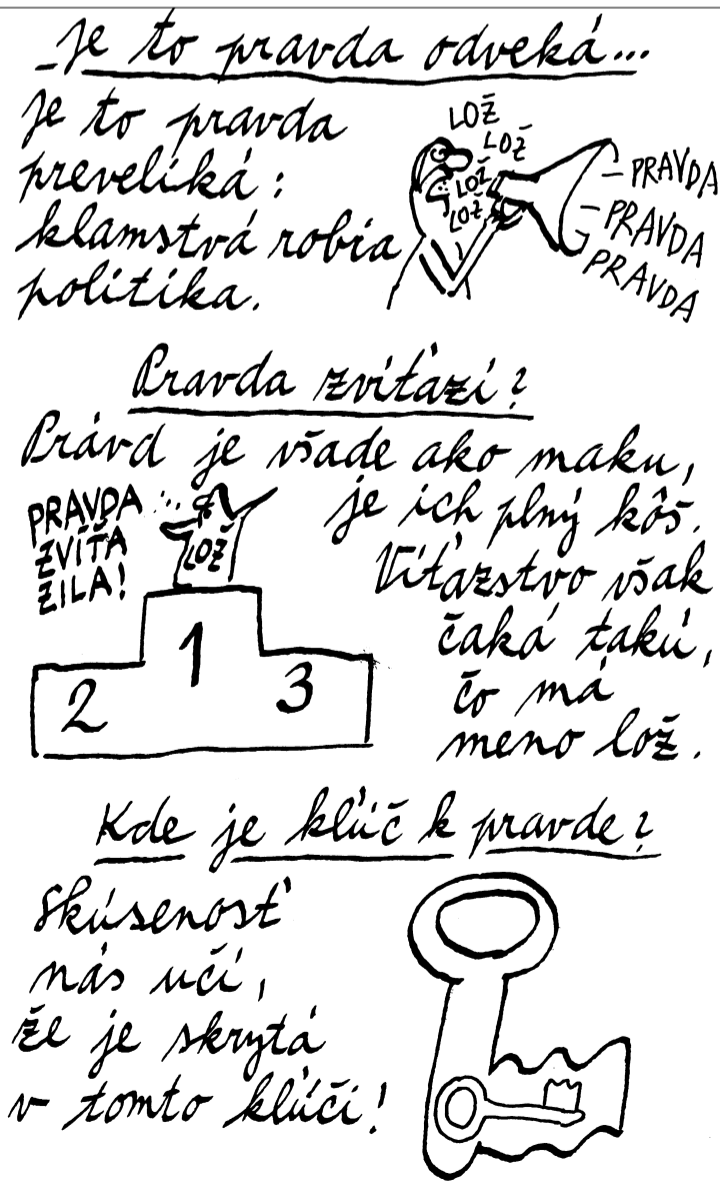 Je to pravda odveká...
Je to pravda
preveliká:
klamstvá robia
politika.
LOŽ
LOŽ
LOŽ
LOŽ
- PRAVDA
- PRAVDA
PRAVDA
Pravda zvíťazí?
Právd je všade ako maku,
je ich plný kôš.
Víťazstvo však
čaká takú,
čo má
meno lož.
PRAVDA
ZVÍŤA
ZILA!
LOŽ
1
2
3
Kde je kľúč k pravde?
Skúsenosť
nás učí,
že je skrytá
v tomto kľúči!